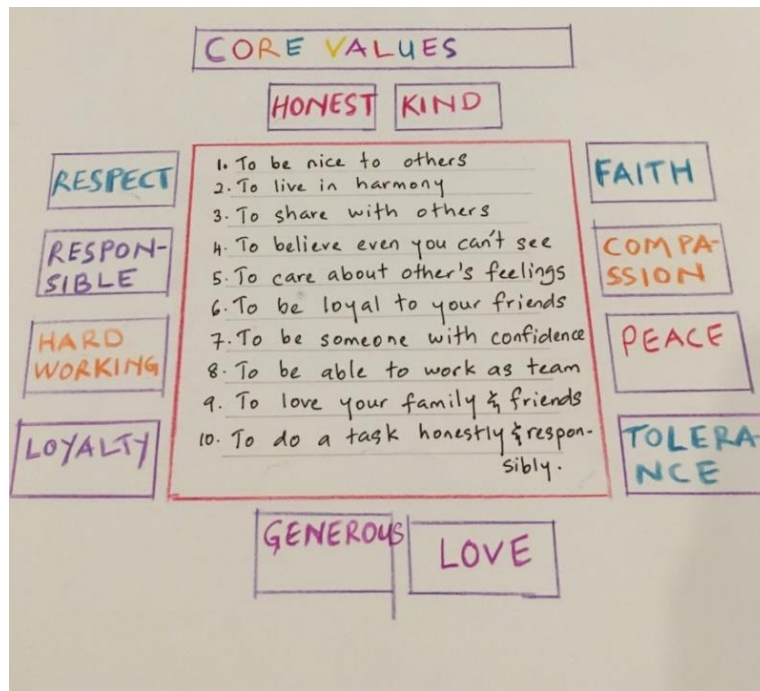 CORE VALUES
HONEST KIND
RESPECT
RESPON-
SIBLE
HARD
WORKING
LOYALTY
1. To be nice to others
2. To live in harmony
3. To share with others
4. To believe even you can't see
5. To care about other's feelings
6. To be loyal to your friends
7. To be someone with confidence
8. To be able to work as team
9. To love your family & friends
10. To do a task honestly & respon-
sibly.
FAITH
COMPA-
SSION
PEACE
TOLERA-
NCE
GENEROUS LOVE